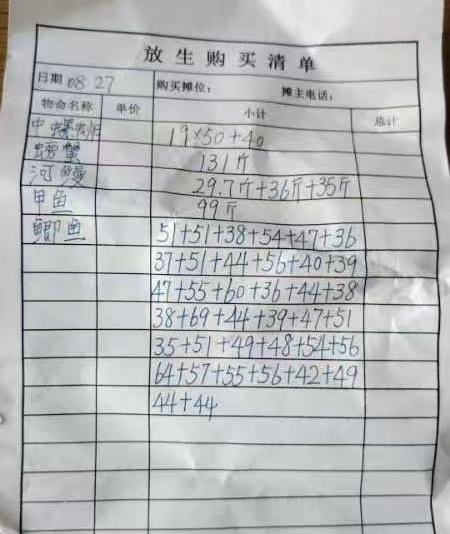 放生购买清单
日期 08.27 购买摊位: 摊主电话:
物命名称 单价 小计 总计
中螺蛳 19×50+40
螃蟹 131斤
河鳗 29.7斤+36斤+35斤
甲鱼 99斤
鲫鱼 51+51+38+54+47+36
37+51+44+56+40+39
47+55+60+36+44+38
38+69+44+39+47+51
35+51+49+48+54+56
64+57+55+56+42+49
44+44